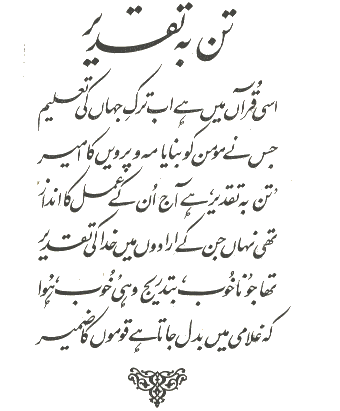 تن بہ تقدیر
اسی قرآں میں ہے اب ترکِ جہاں کی تعلیم
جس نے مومن کو بنایا مہ و پرویں کا امیر
'تن بہ تقدیر' ہے آج اُن کے عمل کا انداز
تھی نہاں جن کے ارادوں میں خدا کی تقدیر
تھا جو 'ناخُوب، بتدریج وہی 'خُوب' ہُوا
کہ غلامی میں بدل جاتا ہے قوموں کا ضمیر